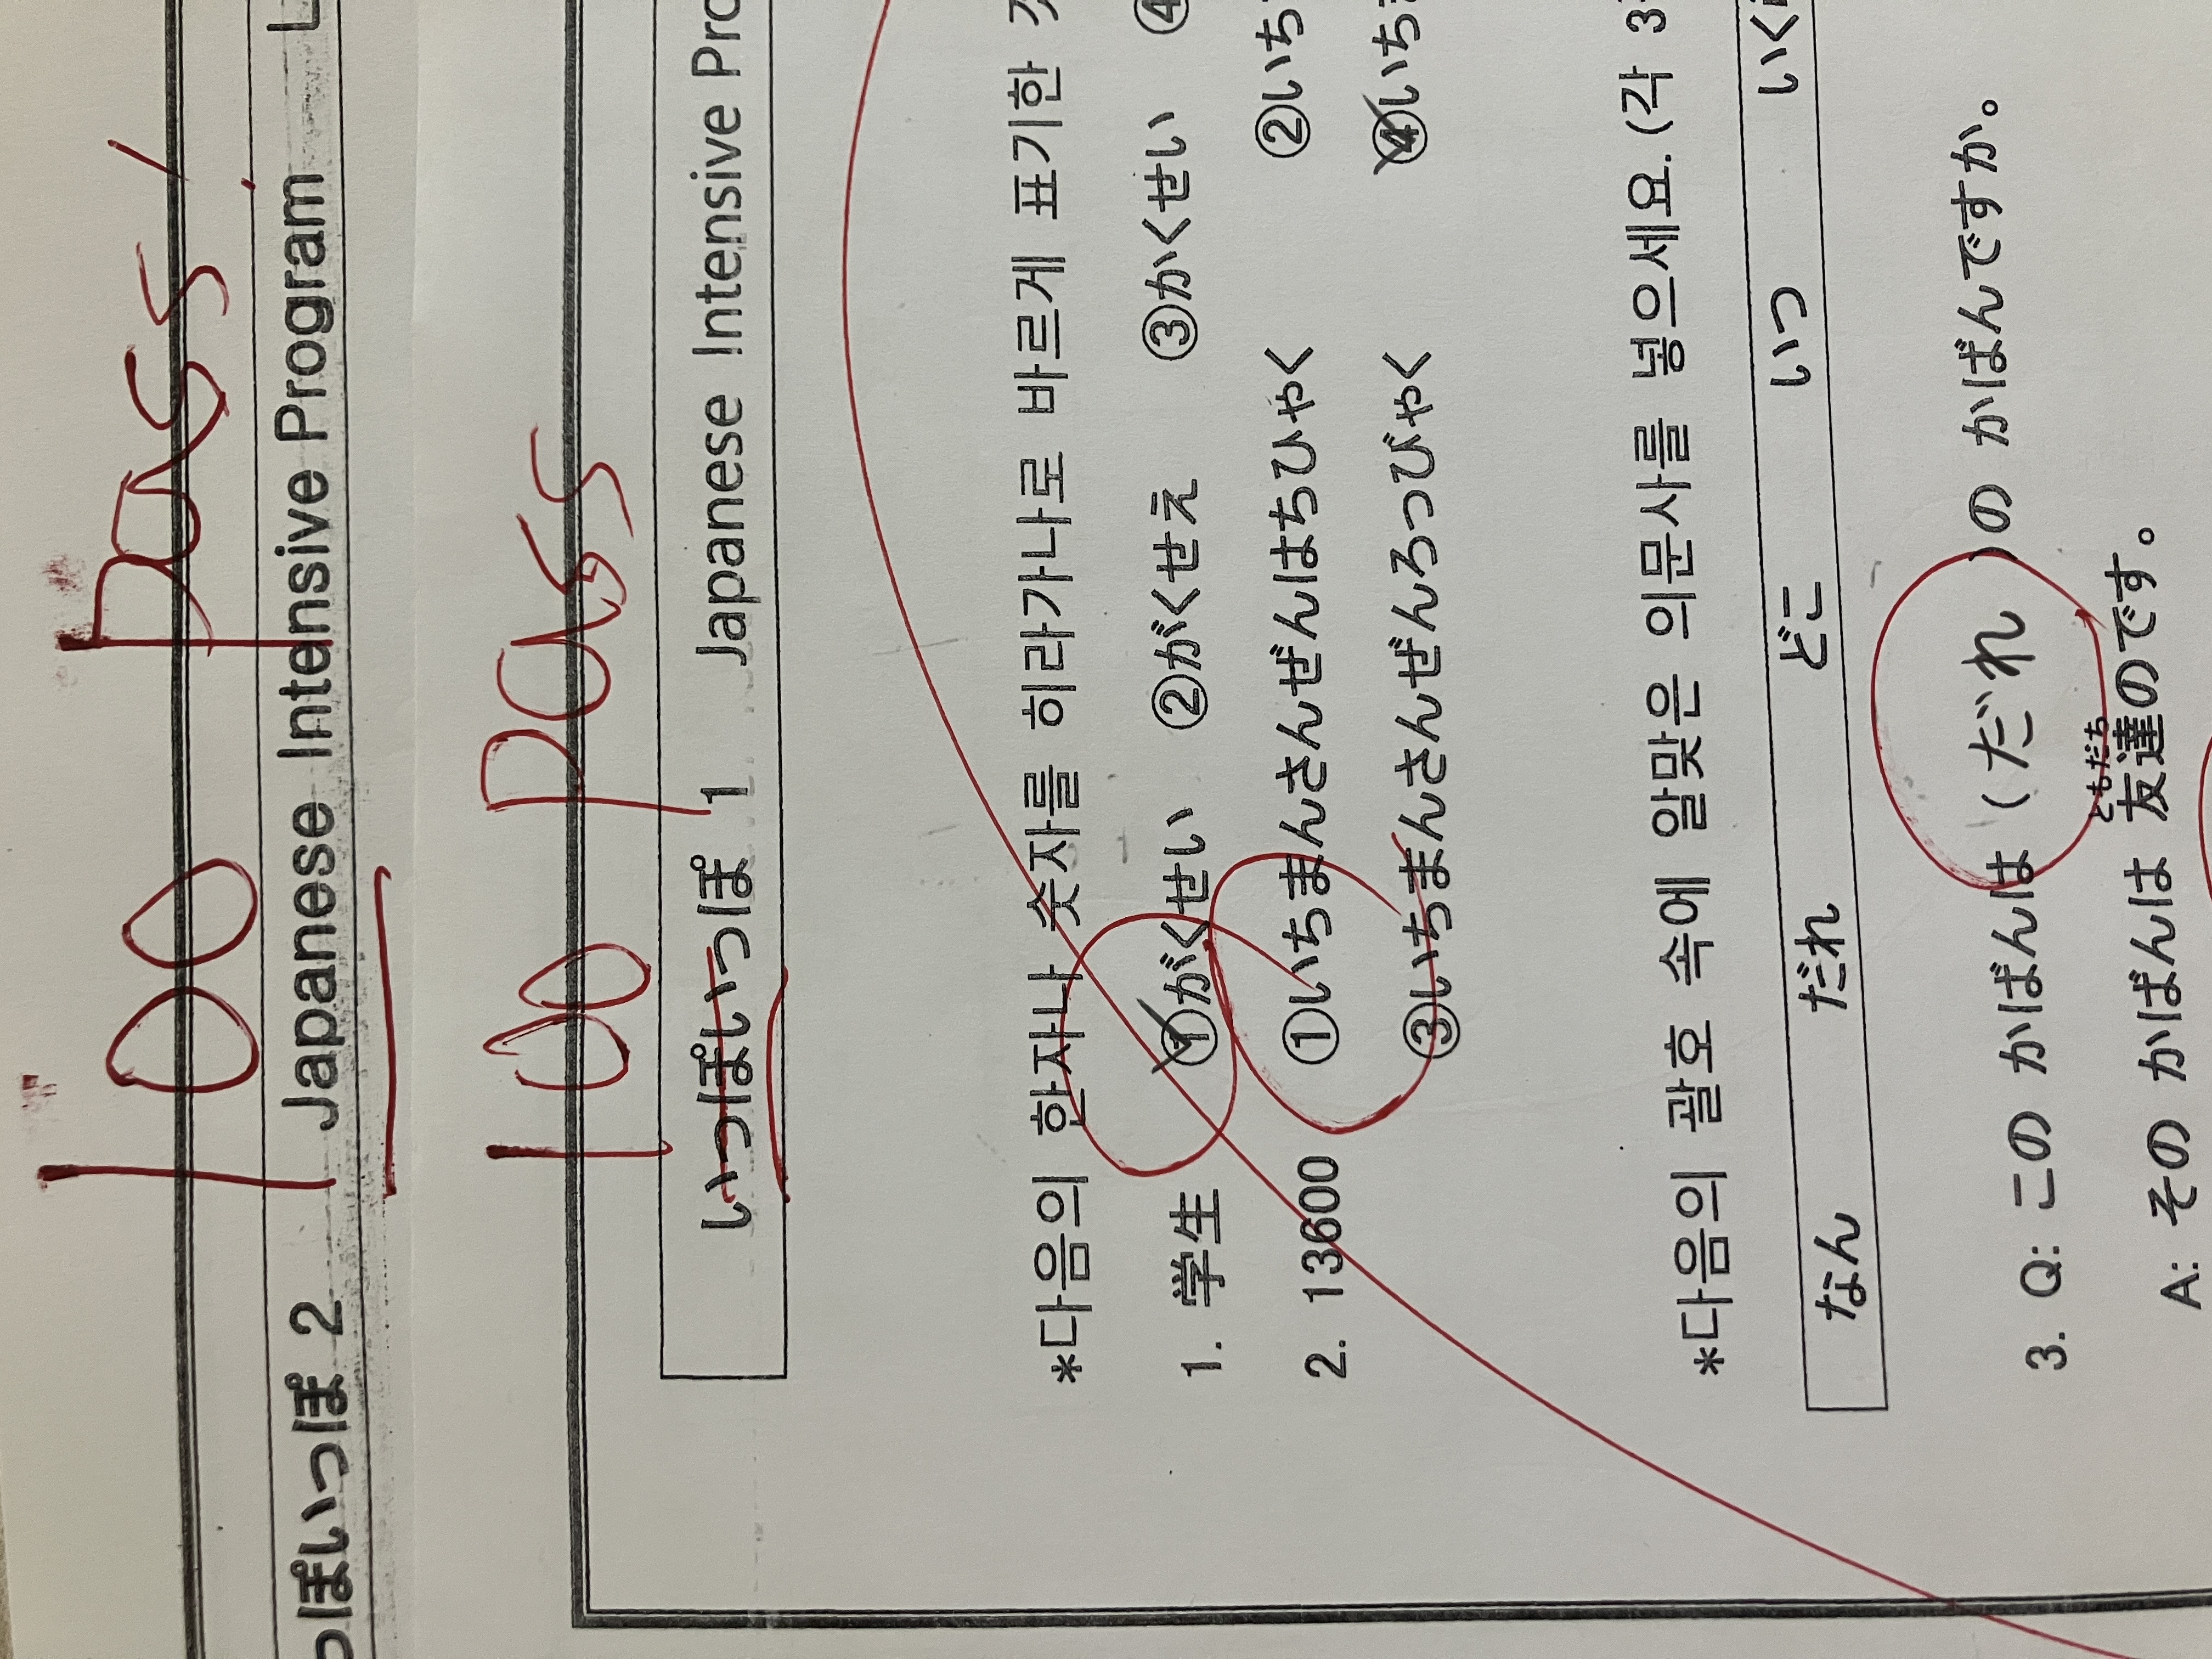 100 pass
っぽいっぽ 2 Japanese Intensive Program
100 pass
いっぽいっぽ 1 Japanese Intensive
*다음의 한자나 숫자를 히라가나로 바르게 표기한
1. 学生 ①がくせい ②がくせえ ③かくせい ④
2. 13600 ①いちまんさんぜんはちひゃく ②いち
③いちまんさんぜんろっぴゃく ④いち
*다음의 괄호 속에 알맞은 의문사를 넣으세요. (각 3
なん だれ どこ いつ いく
3. Q: この かばんは (だれ)の かばんですか。
A: その かばんは 友達のです。
ともだち